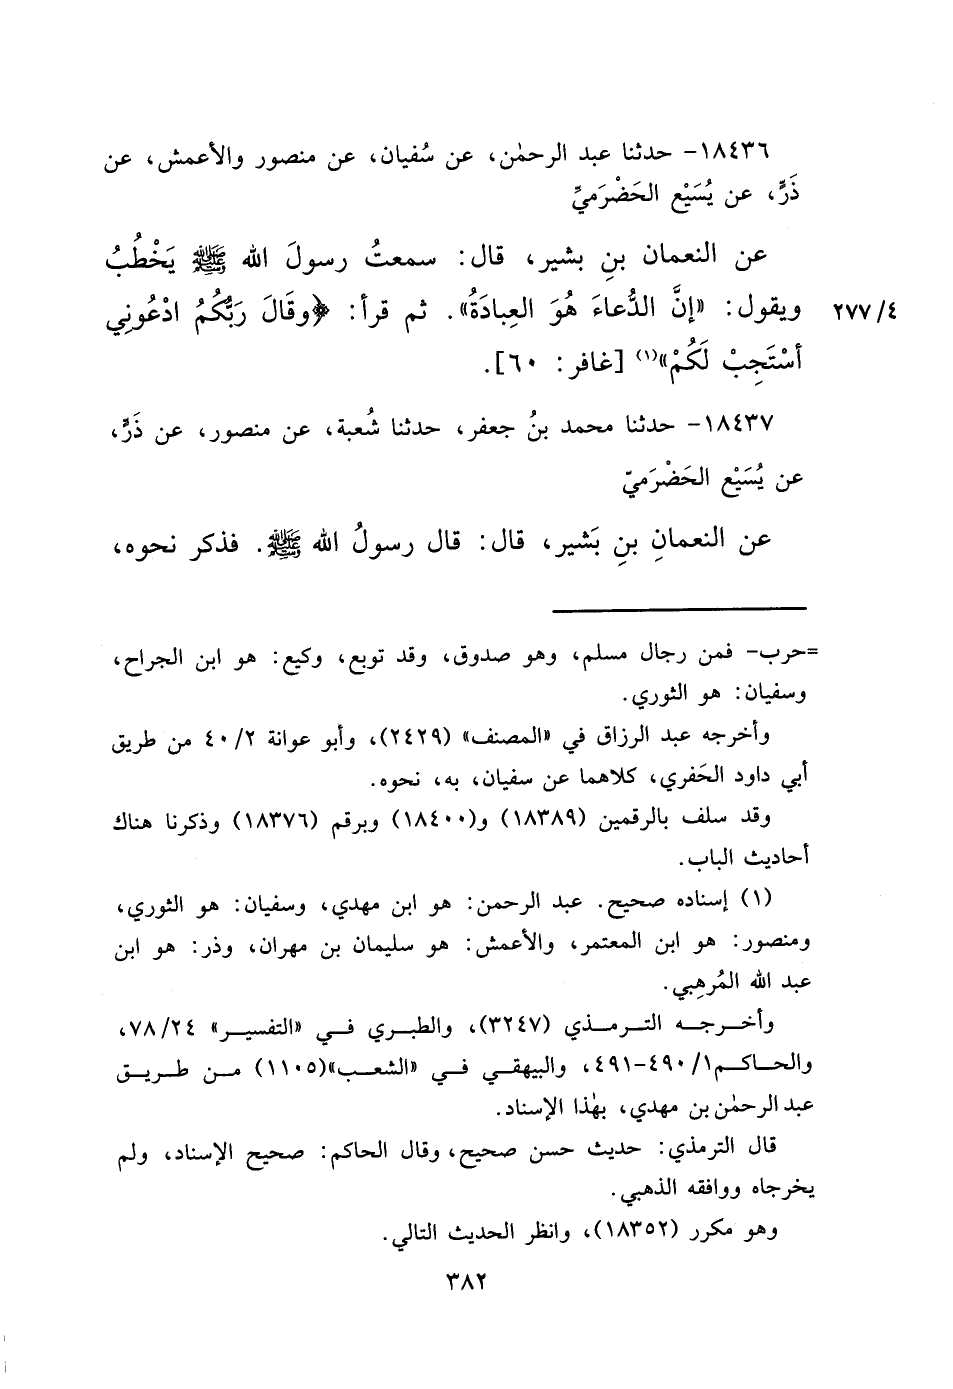 ١٨٤٣٦- حدثنا عبد الرحمٰن، عن سُفيان، عن منصور والأعمش، عن
ذَرٍّ، عن يُسَيْع الحَضْرَميِّ
عن النعمان بنِ بشير، قال: سمعتُ رسولَ الله ﷺ يَخْطُبُ
ويقول: «إنَّ الدُّعاءَ هُوَ العِبادَةُ». ثم قرأ: ﴿وقَالَ رَبُّكُمُ ادْعُونِي
٢٧٧/٤
أسْتَجِبْ لَكُمْ»(١) [غافر: ٦٠].
١٨٤٣٧- حدثنا محمد بنُ جعفر، حدثنا شُعبة، عن منصور، عن ذَرٍّ،
عن يُسَيْع الحَضْرَميّ
عن النعمانِ بنِ بَشير، قال: قال رسولُ الله ﷺ. فذكر نحوه،
=حرب- فمن رجال مسلم، وهو صدوق، وقد توبع، وكيع: هو ابن الجراح،
وسفيان: هو الثوري.
وأخرجه عبد الرزاق في «المصنف» (٢٤٢٩)، وأبو عوانة ٤٠/٢ من طريق
أبي داود الحَفري، كلاهما عن سفيان، به، نحوه.
وقد سلف بالرقمين (١٨٣٨٩) و(١٨٤٠٠) وبرقم (١٨٣٧٦) وذكرنا هناك
أحاديث الباب.
(١) إسناده صحيح. عبد الرحمن: هو ابن مهدي، وسفيان: هو الثوري،
ومنصور: هو ابن المعتمر، والأعمش: هو سليمان بن مهران، وذر: هو ابن
عبد الله المُرهِبي.
وأخرجه الترمذي (٣٢٤٧)، والطبري في «التفسير» ٧٨/٢٤،
والحاكم ٤٩٠/١-٤٩١، والبيهقي في «الشعب»(١١٠٥) من طريق
عبد الرحمٰن بن مهدي، بهٰذا الإسناد.
قال الترمذي: حديث حسن صحيح، وقال الحاكم: صحيح الإسناد، ولم
يخرجاه ووافقه الذهبي.
وهو مكرر (١٨٣٥٢)، وانظر الحديث التالي.
٣٨٢